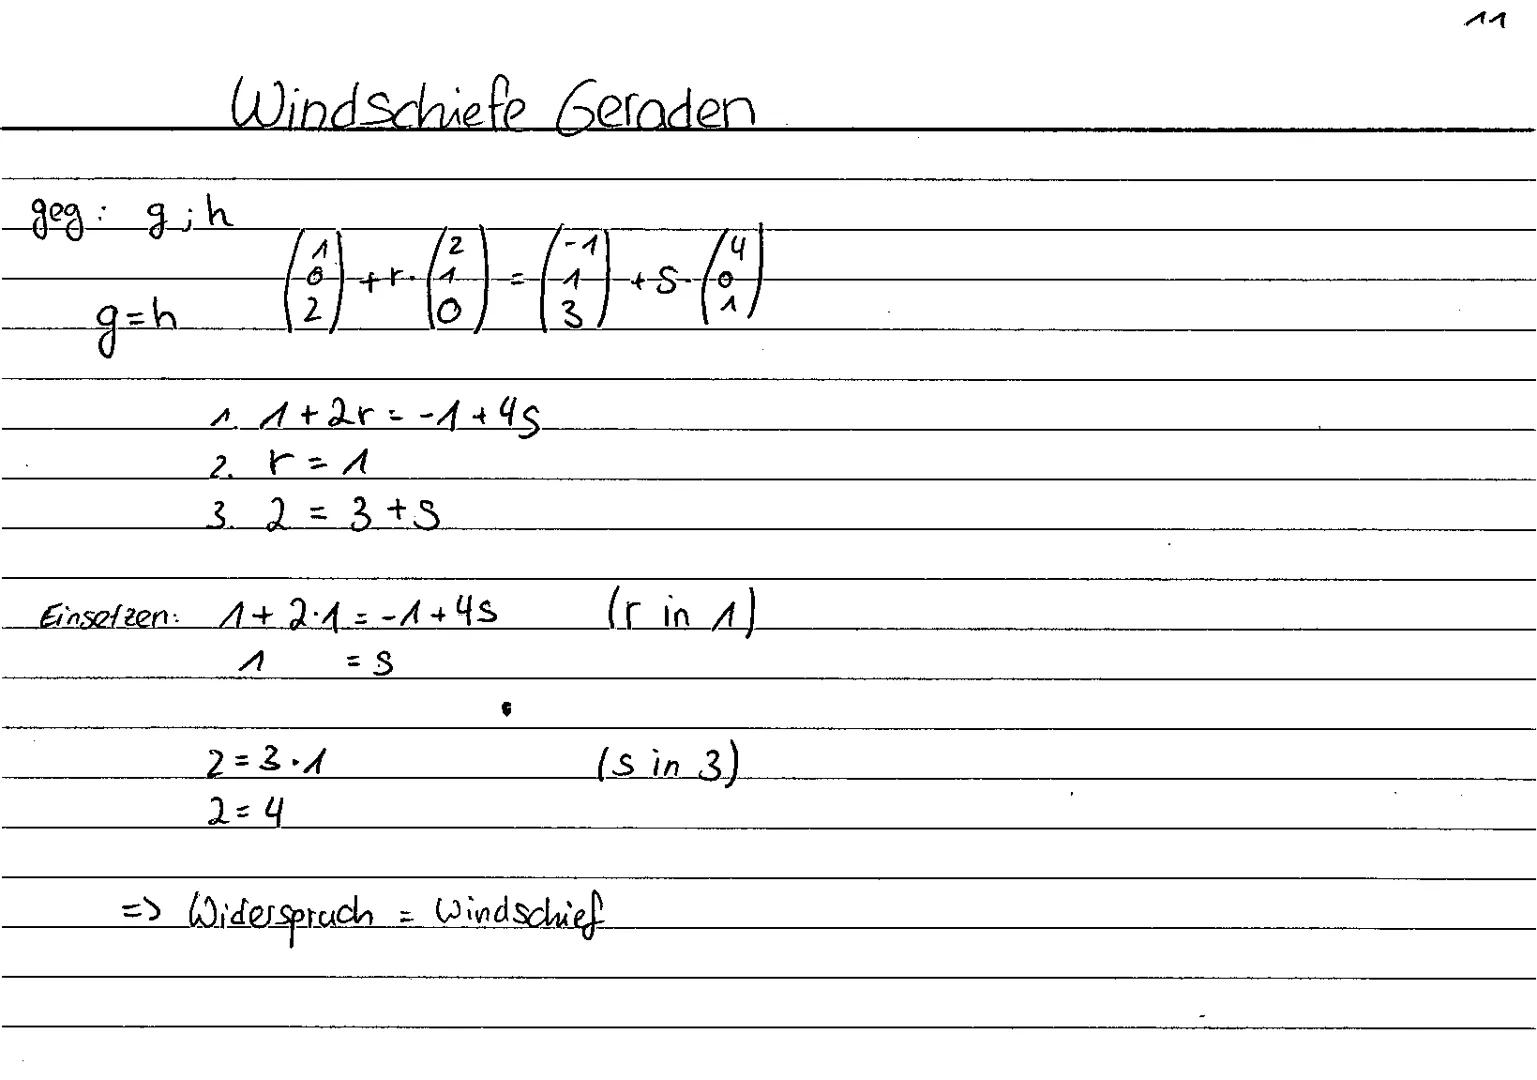 11
Windschiefe Geraden
geg: g ; h
g=h (1 0 2) + r · (2 1 0) = (-1 1 3) + s · (4 0 1)
1. 1 + 2r = -1 + 4s
2. r = 1
3. 2 = 3 + s
Einsetzen: 1 + 2·1 = -1 + 4s (r in 1)
1 = s
2 = 3 · 1 (s in 3)
2 = 4
=> Widerspruch = Windschief